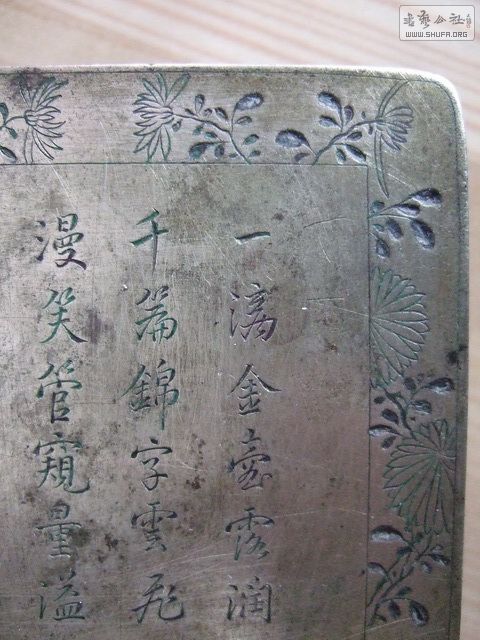 一滴金壺露潤
千篇錦字雲飛
漫笑管窺量溢
書藝公社
WWW.SHUFA.ORG